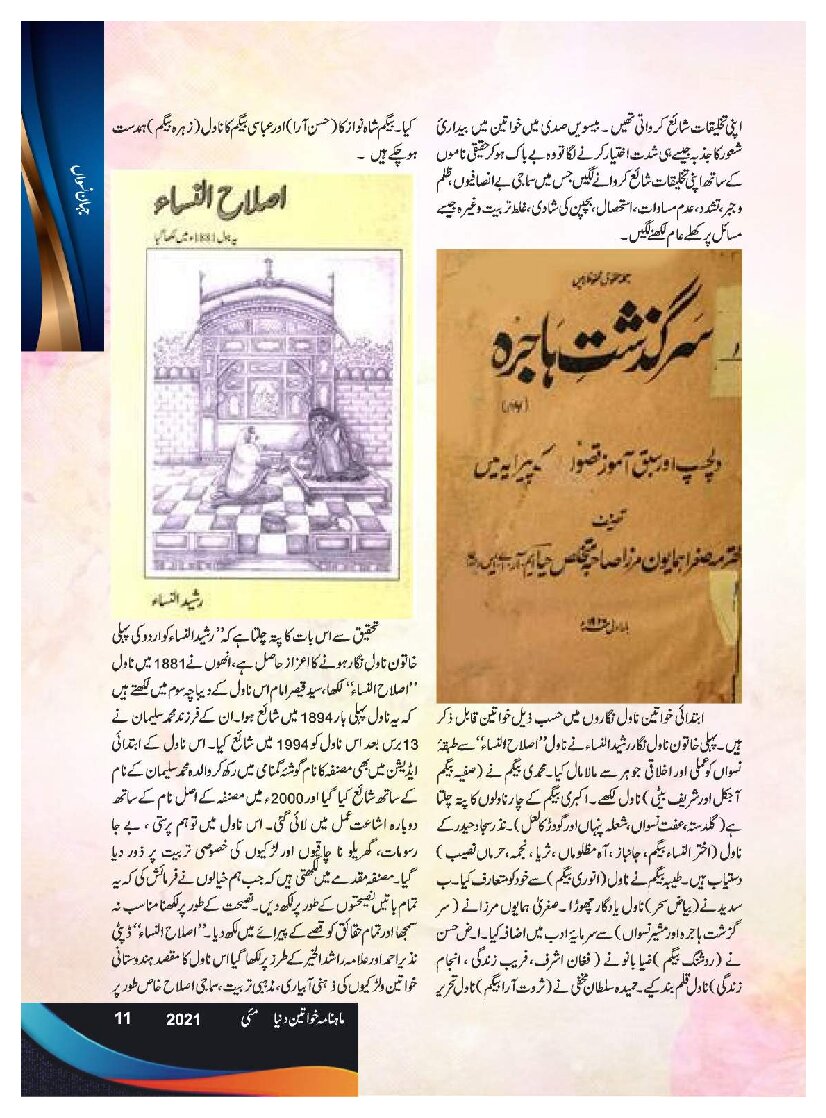 جہانِ نسواں
اپنی تخلیقات شائع کرواتی تھیں ۔ بیسویں صدی میں خواتین میں بیداریٔ
شعور کا جذبہ جیسے ہی شدت اختیار کرنے لگا تو وہ بے باک ہو کر حقیقی ناموں
کے ساتھ اپنی تخلیقات شائع کروانے لگیں جس میں سماجی بے انصافیوں، ظلم
و جبر، تشدد، عدم مساوات، استحصال، بچپن کی شادی، غلط تربیت وغیرہ جیسے
مسائل پر کھلے عام لکھنے لگیں۔
جملہ حقوق محفوظ ہیں
سرگذشتِ ہاجرہ
دلچسپ اور سبق آموز قصوں کے پیرایہ میں
تصنیف
محترمہ صغرا ہمایوں مرزا صاحبہ متخلص حیا ایم۔آر۔اے۔ایس
ابتدائی خواتین ناول نگاروں میں حسب ذیل خواتین قابل ذکر
ہیں۔ پہلی خاتون ناول نگار رشید النساء نے ناول ”اصلاح النساء“ سے طبقۂ
نسواں کو عملی اور اخلاقی جوہر سے مالا مال کیا۔ محمدی بیگم نے (صفیہ بیگم
آجکل اور شریف بیٹی) ناول لکھے۔ اکبری بیگم کے چار ناولوں کا پتہ چلتا
ہے (گلدستہ، عفت نسواں، شعلہ پنہاں اور گودڑ کا لعل)۔ نذر سجاد حیدر کے
ناول (اختر النساء بیگم، جانباز، آہ مظلوماں، ثریا، نجمہ، حرماں نصیب)
دستیاب ہیں۔ طیبہ بیگم نے ناول (انوری بیگم) سے خود کو متعارف کیا۔ ب
سدید نے (بیاض سحر) ناول یادگار چھوڑا۔ صغریٰ ہمایوں مرزا نے (سر
گزشت ہاجرہ اور مشیر نسواں) سے سرمایۂ ادب میں اضافہ کیا۔ ا۔ض حسن
نے (روشنک بیگم) ضیا بانو نے (فغان اشرف، فریب زندگی، انجام
زندگی) ناول قلم بند کیے۔ حمیدہ سلطان مخفی نے (ثروت آرا بیگم) ناول تحریر
کیا۔ بیگم شاہ نواز کا (حسن آرا) اور عباسی بیگم کا ناول (زہرہ بیگم) ہمدست
ہو چکے ہیں ۔
اصلاح النساء
یہ ناول 1881ء میں لکھا گیا
رشید النساء
تحقیق سے اس بات کا پتہ چلتا ہے کہ ”رشید النساء کو اردو کی پہلی
خاتون ناول نگار ہونے کا اعزاز حاصل ہے، انھوں نے 1881 میں ناول
”اصلاح النساء“ لکھا، سید قیصر امام اس ناول کے دیباچہ سوم میں لکھتے ہیں
کہ یہ ناول پہلی بار 1894 میں شائع ہوا۔ ان کے فرزند محمد سلیمان نے
13 برس بعد اس ناول کو 1994 میں شائع کیا۔ اس ناول کے ابتدائی
ایڈیشن میں بھی مصنفہ کا نام گوشۂ گمنامی میں رکھ کر والدہ محمد سلیمان کے نام
کے ساتھ شائع کیا گیا اور 2000ء میں مصنفہ کے اصل نام کے ساتھ
دوبارہ اشاعت عمل میں لائی گئی۔ اس ناول میں توہم پرستی، بے جا
رسومات، گھریلو ناچاقیوں اور لڑکیوں کی خصوصی تربیت پر زور دیا
گیا۔ مصنفہ مقدمے میں لکھتی ہیں کہ جب ہم خیالوں نے فرمائش کی کہ یہ
تمام باتیں نصیحتوں کے طور پر لکھ دیں۔ نصیحت کے طور پر لکھنا مناسب نہ
سمجھا اور تمام حقائق کو قصے کے پیرائے میں لکھ دیا۔ ”اصلاح النساء“ ڈپٹی
نذیر احمد اور علامہ راشد الخیر کے طرز پر لکھا گیا اس ناول کا مقصد ہندوستانی
خواتین و لڑکیوں کی ذہنی آبیاری، مذہبی تربیت، سماجی اصلاح خاص طور پر
ماہنامہ خواتین دنیا مئی 2021 11